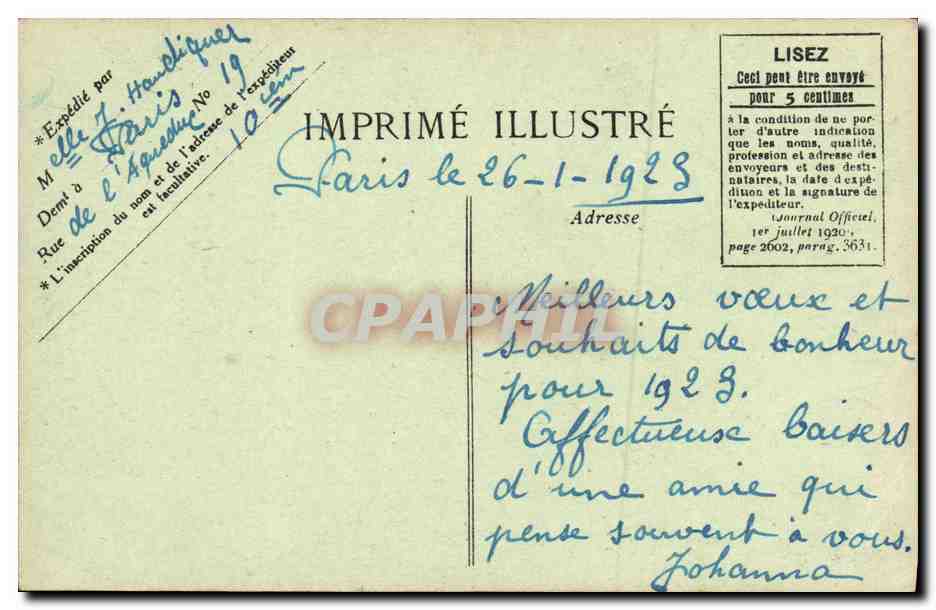 * Expédié par
Melle J. Haudiquer
Demt à Paris
Rue de l'Aqueduc No 19
10 ièm
* L'inscription du nom et de l'adresse de l'expéditeur
est facultative.
IMPRIMÉ ILLUSTRÉ
Paris le 26-1-1923
Adresse
LISEZ
Ceci peut être envoyé
pour 5 centimes
à la condition de ne por-
ter d'autre indication
que les noms, qualité,
profession et adresse des
envoyeurs et des desti-
nataires, la date d expé-
dition et la signature de
l'expéditeur.
(Journal Officiel,
1er juillet 1920,
page 2602, parag. 3631.
CPAPHIL
Meilleurs vœux et
souhaits de bonheur
pour 1923.
Affectueux baisers
d'une amie qui
pense souvent à vous.
Johanna